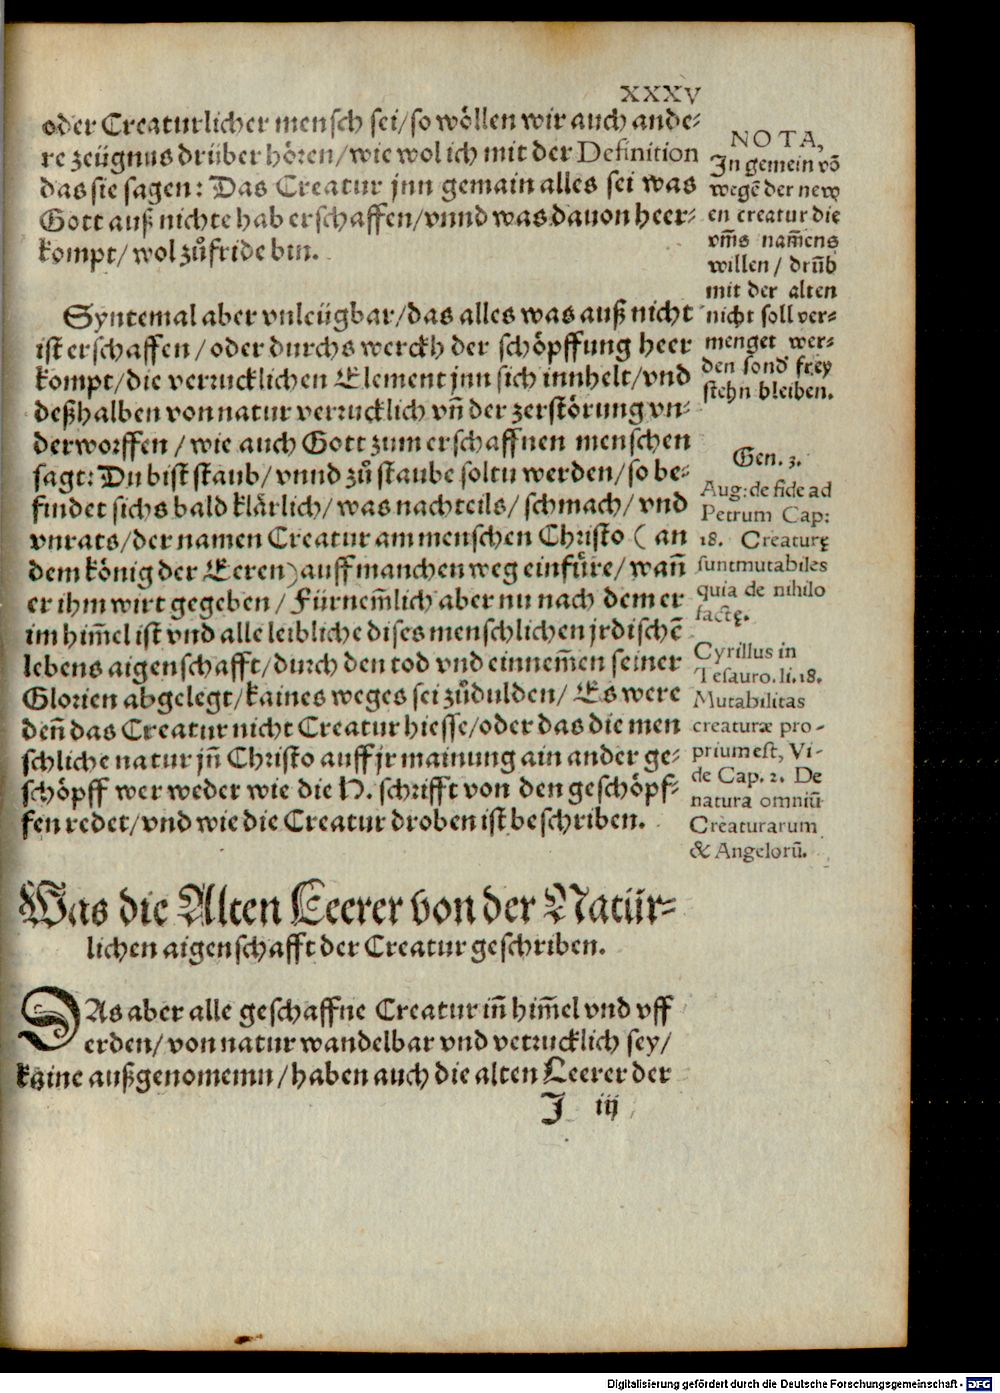 XXXV
oder Creaturlicher mensch sei/so wöllen wir auch ande⸗
re zeügnus drüber hören/wie wol ich mit der Definition
das sie sagen: Das Creatur jnn gemain alles sei was
Gott auß nichte hab erschaffen/vnnd was dauon heer⸗
kompt/ wol zůfride bin.
Syntemal aber vnleügbar/das alles was auß nicht
ist erschaffen/oder durchs werckh der schöpffung heer
kompt/die verrucklichen Element jnn sich innhelt/vnd
deßhalben von natur verrucklich vn̄ der zerstörung vn⸗
derworffen/wie auch Gott zum erschaffnen menschen
sagt: Du bist staub/vnnd zů staube soltu werden/so be⸗
findet sichs bald klärlich/was nachteils/schmach/vnd
vnrats/der namen Creatur am menschen Christo (an
dem könig der Eeren) auff manchen weg einfüre/wañ
er ihm wirt gegeben/Fürnem̄lich aber nu nach dem er
im him̄el ist vnd alle leibliche dises menschlichen jrdischē
lebens aigenschafft/durch den tod vnd einnem̄en seiner
Glorien abgelegt/kaines weges sei zůdulden/Es were
deñ das Creatur nicht Creatur hiesse/oder das die men
schliche natur jñ Christo auff jr mainung ain ander ge⸗
schöpff wer weder wie die H. schrifft von den geschöpf⸗
fen redet/vnd wie die Creatur droben ist beschriben.
Was die Alten Leerer von der Natür⸗
lichen aigenschafft der Creatur geschriben.
DAs aber alle geschaffne Creatur iñ him̄el vnd vff
erden/von natur wandelbar vnd verrucklich sey/
kaine außgenomemn/haben auch die alten Leerer der
J iij
NOTA,
In gemein võ
wegē der new
en creatur die
vm̄s nam̄ens
willen/ drūb
mit der alten
nicht soll ver⸗
menget wer⸗
den sond' frey
stehn bleiben.
Gen. 3.
Aug: de fide ad
Petrum Cap:
18. Creaturę
sunt mutabiles
quia de nihilo
factę.
Cyrillus in
Tesauro. li. 18.
Mutabilitas
creaturæ pro-
prium est, Vi-
de Cap. 2. De
natura omniū
Creaturarum
& Angelorū.
Digitalisierung gefördert durch die Deutsche Forschungsgemeinschaft - DFG